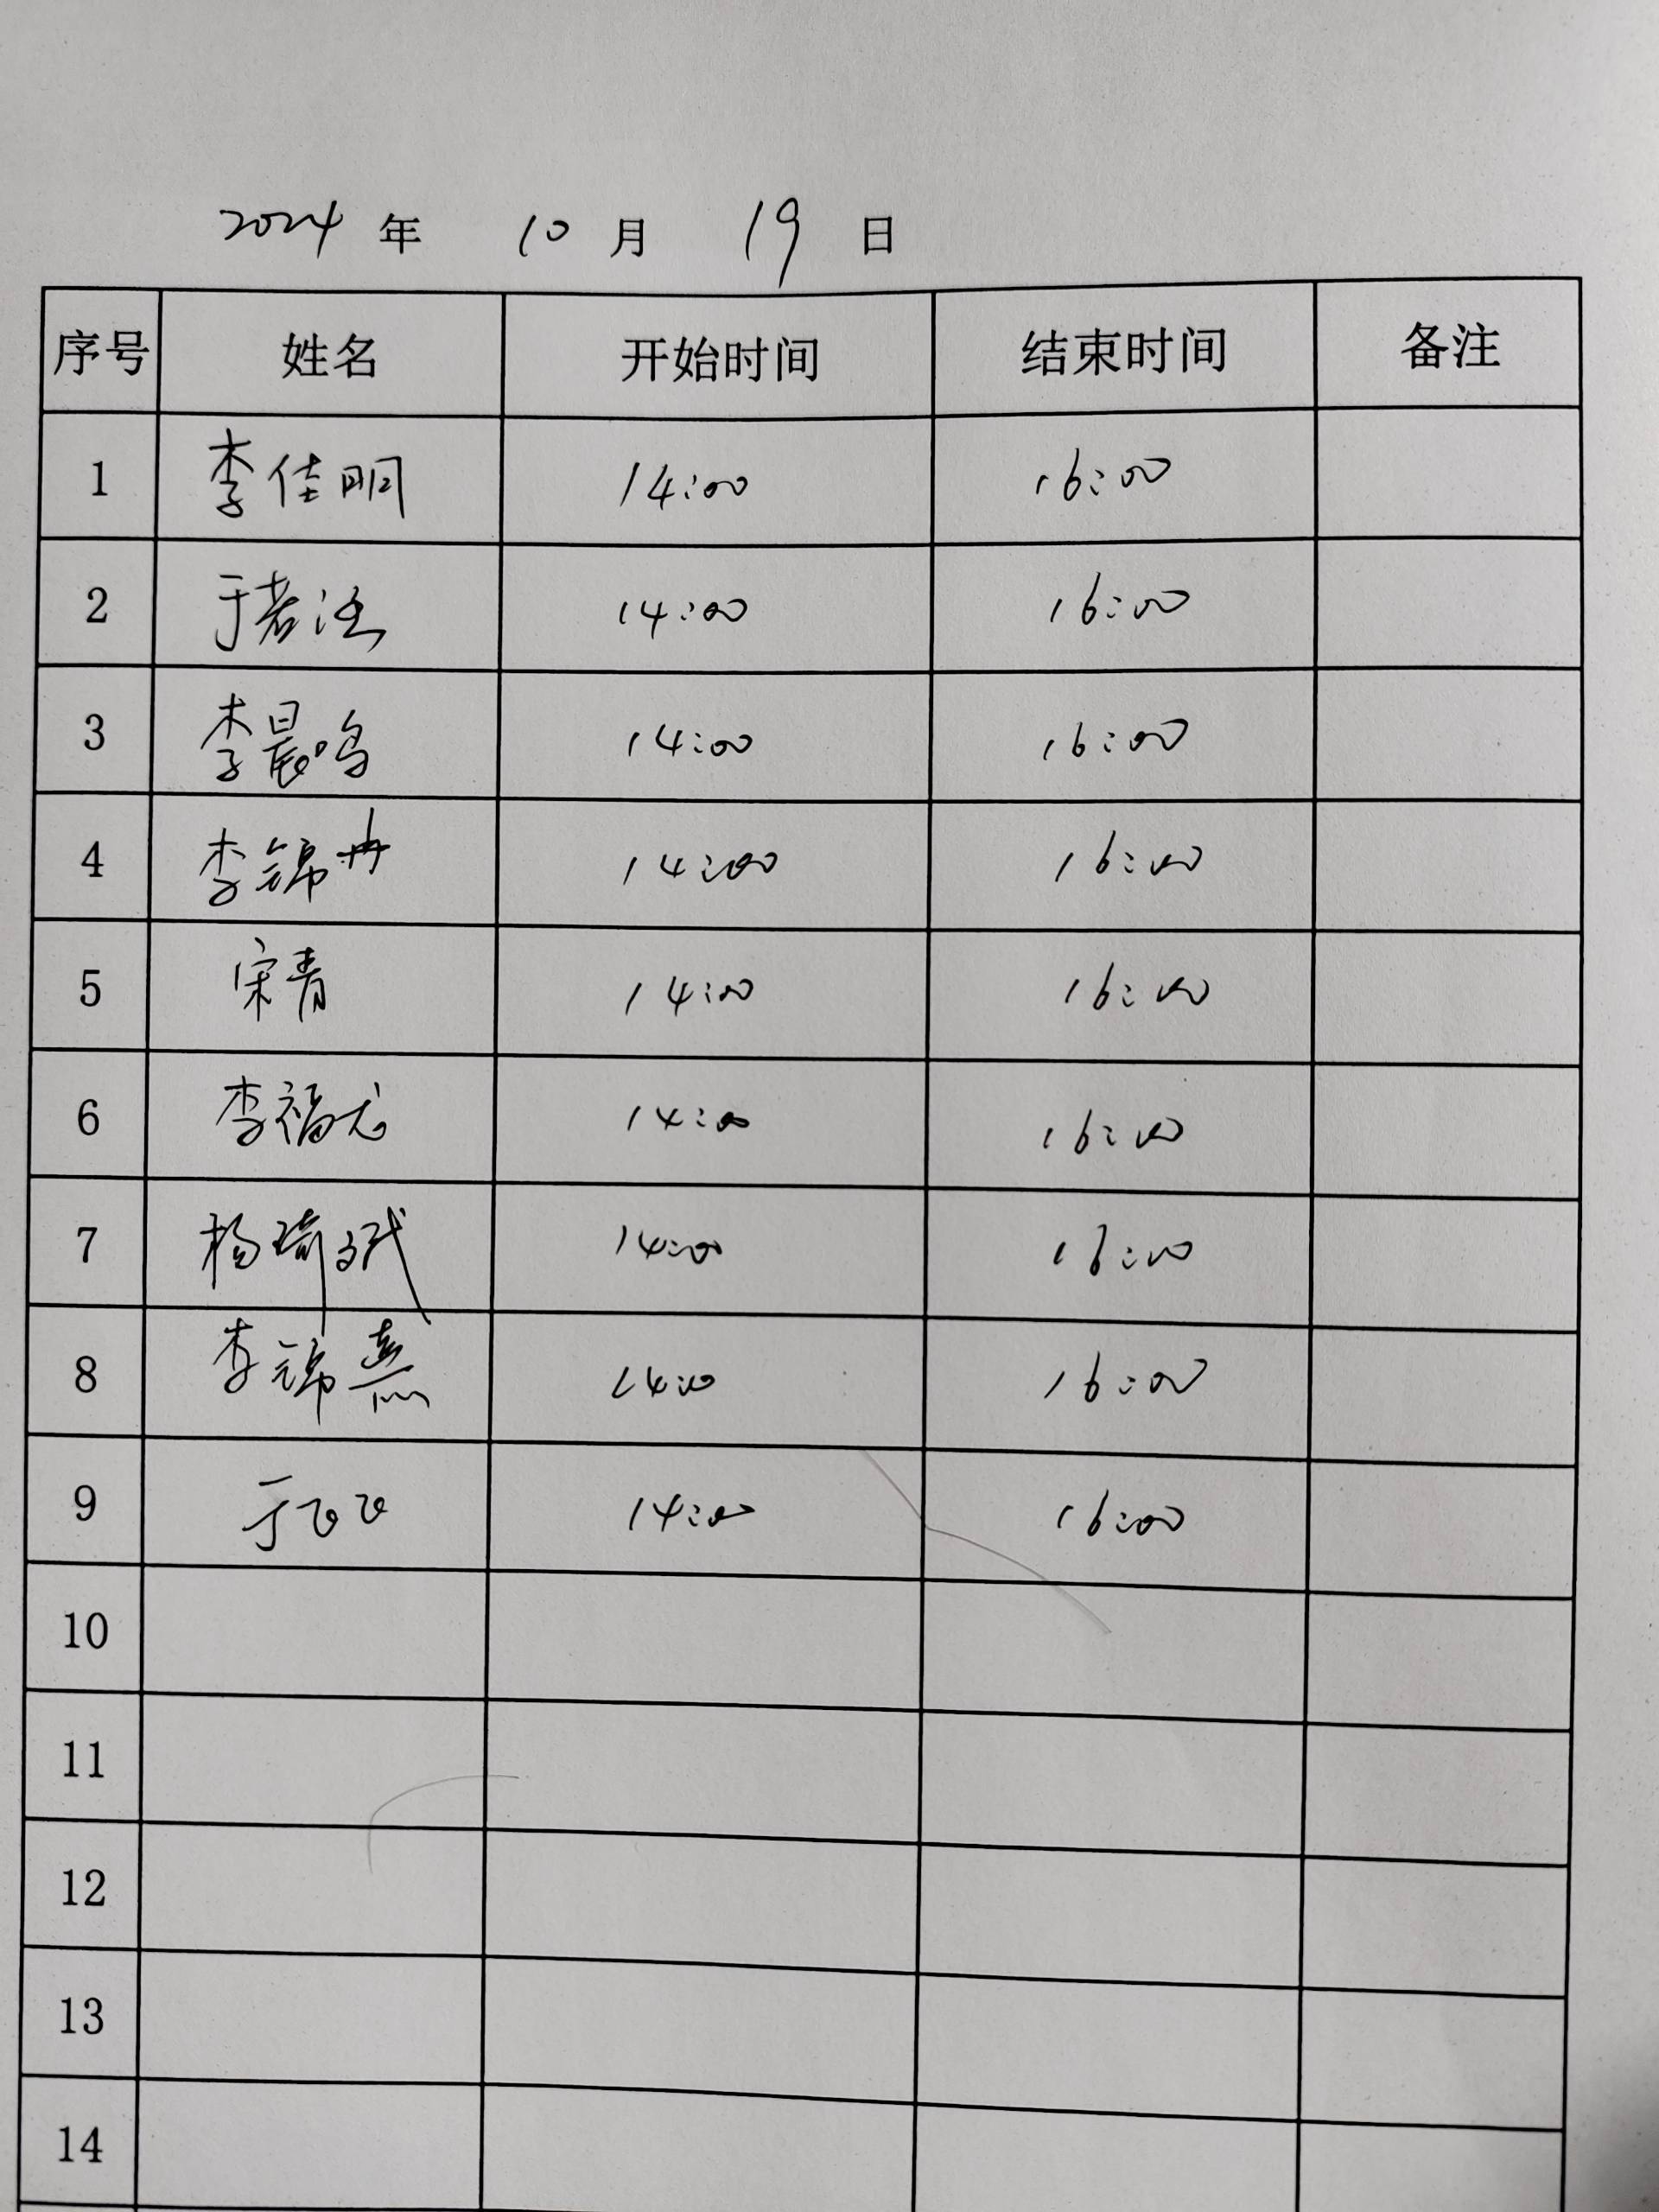 2024 年 10 月 19 日
序号 姓名 开始时间 结束时间 备注
1 李佳明 14:00 16:00
2 于若汪 14:00 16:00
3 李晨鸣 14:00 16:00
4 李锦冉 14:00 16:00
5 宋青 14:00 16:00
6 李福龙 14:00 16:00
7 杨琦斌 14:00 16:00
8 李锦熹 14:00 16:00
9 于飞飞 14:00 16:00
10
11
12
13
14